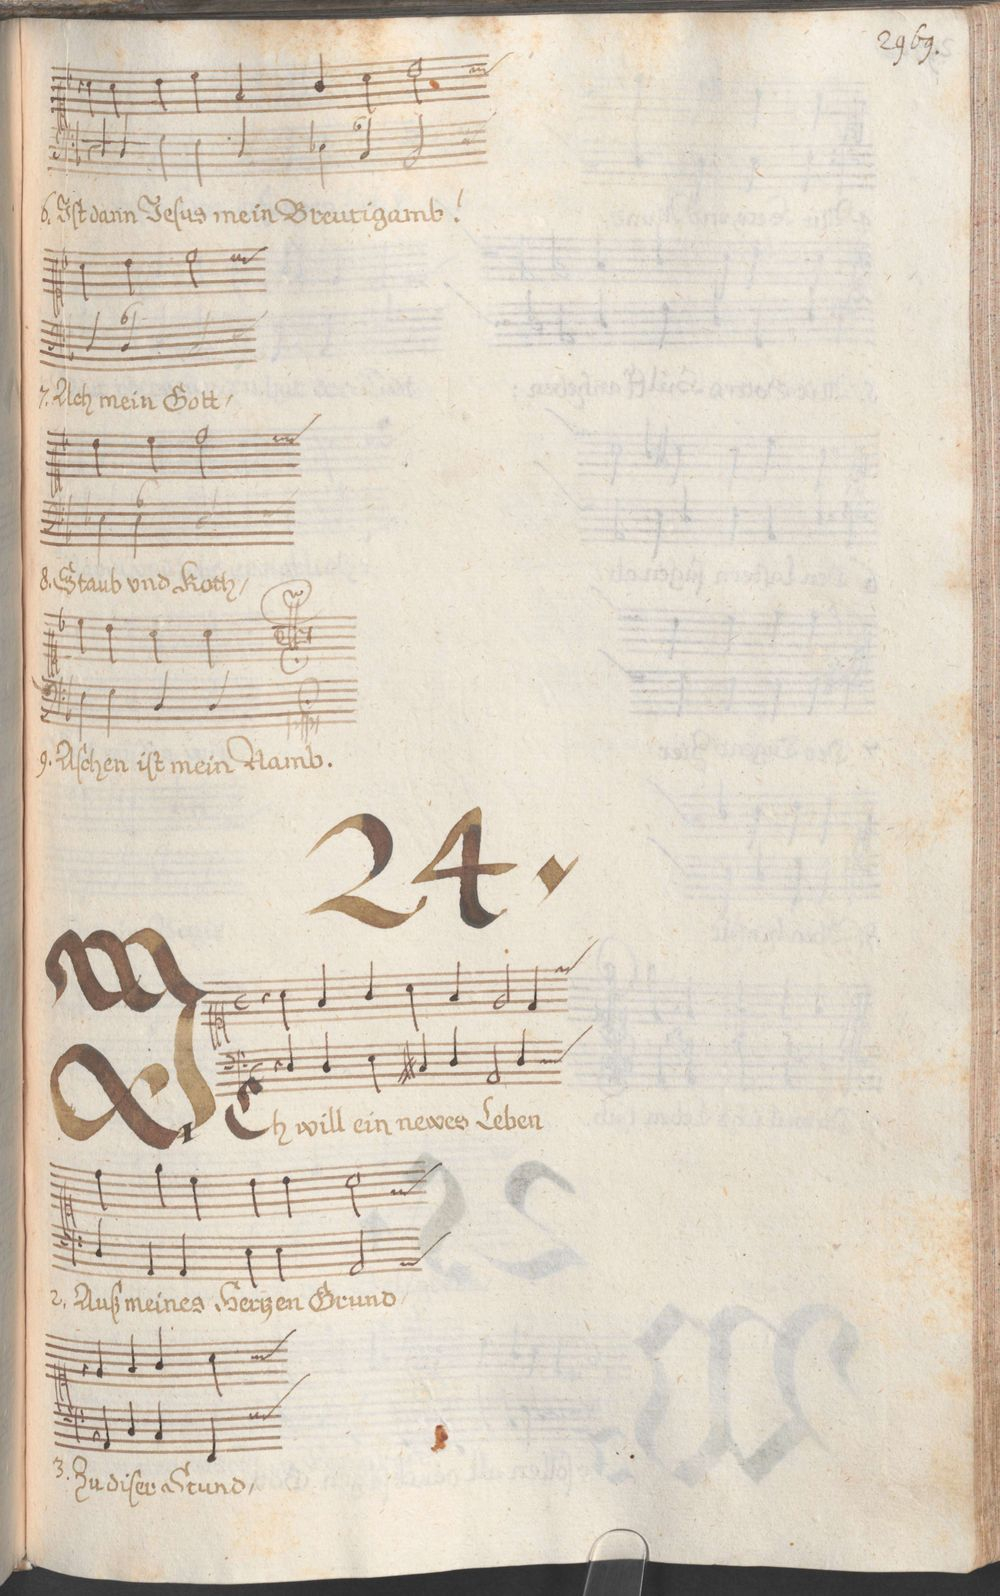 2969.
6. Ist dann Jesus mein Breutigamb!
7. Ach mein Gott/
8. Staub vnd Koth/
9. Aschen ist mein Namb.
24.
1 Ich will ein newes Leben
2. Auß meines Hertzen Grund/
3. Zu diser Stund/